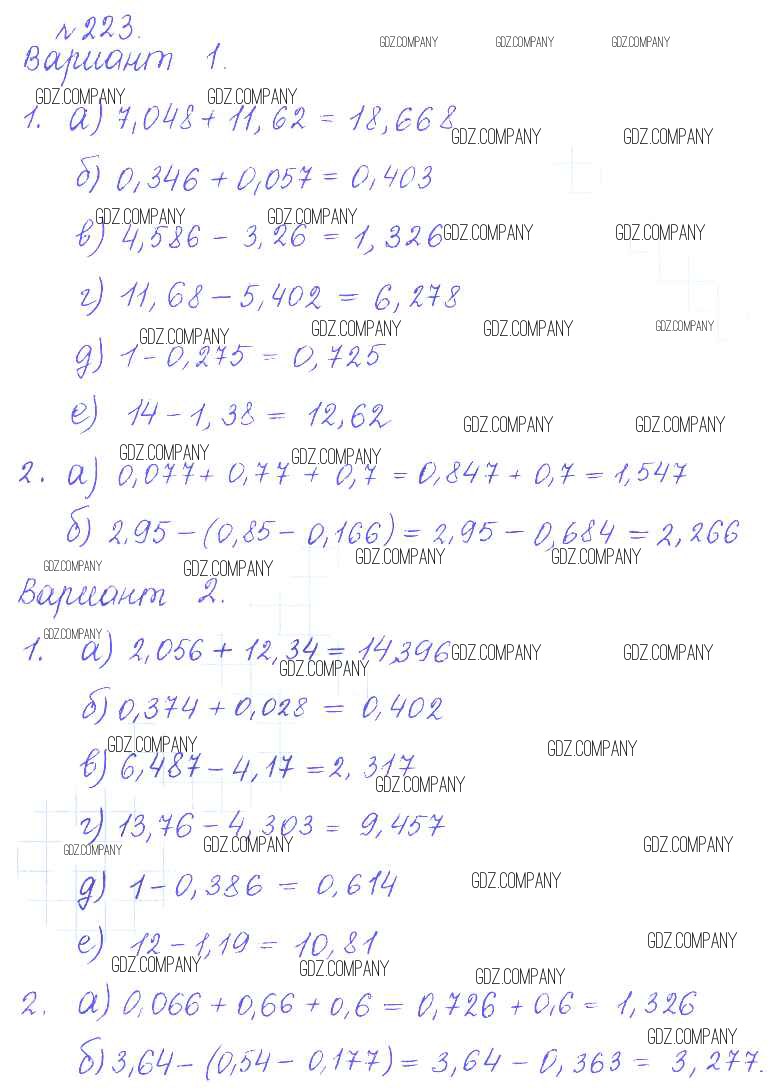 №223.
GDZ.COMPANY GDZ.COMPANY GDZ.COMPANY
Вариант 1.
GDZ.COMPANY GDZ.COMPANY
1. а) 7,048 + 11,62 = 18,668
GDZ.COMPANY GDZ.COMPANY
б) 0,346 + 0,057 = 0,403
GDZ.COMPANY GDZ.COMPANY
в) 4,586 - 3,26 = 1,326
GDZ.COMPANY GDZ.COMPANY
г) 11,68 - 5,402 = 6,278
GDZ.COMPANY GDZ.COMPANY GDZ.COMPANY GDZ.COMPANY
д) 1 - 0,275 = 0,725
е) 14 - 1,38 = 12,62
GDZ.COMPANY GDZ.COMPANY
GDZ.COMPANY GDZ.COMPANY
2. а) 0,077 + 0,77 + 0,7 = 0,847 + 0,7 = 1,547
б) 2,95 - (0,85 - 0,166) = 2,95 - 0,684 = 2,266
GDZ.COMPANY GDZ.COMPANY GDZ.COMPANY GDZ.COMPANY
Вариант 2.
GDZ.COMPANY
1. а) 2,056 + 12,34 = 14,396
GDZ.COMPANY GDZ.COMPANY
GDZ.COMPANY
б) 0,374 + 0,028 = 0,402
GDZ.COMPANY GDZ.COMPANY
в) 6,487 - 4,17 = 2,317
GDZ.COMPANY
г) 13,76 - 4,303 = 9,457
GDZ.COMPANY GDZ.COMPANY GDZ.COMPANY
д) 1 - 0,386 = 0,614
GDZ.COMPANY
е) 12 - 1,19 = 10,81
GDZ.COMPANY
GDZ.COMPANY GDZ.COMPANY GDZ.COMPANY
2. а) 0,066 + 0,66 + 0,6 = 0,726 + 0,6 = 1,326
GDZ.COMPANY
б) 3,64 - (0,54 - 0,177) = 3,64 - 0,363 = 3,277.